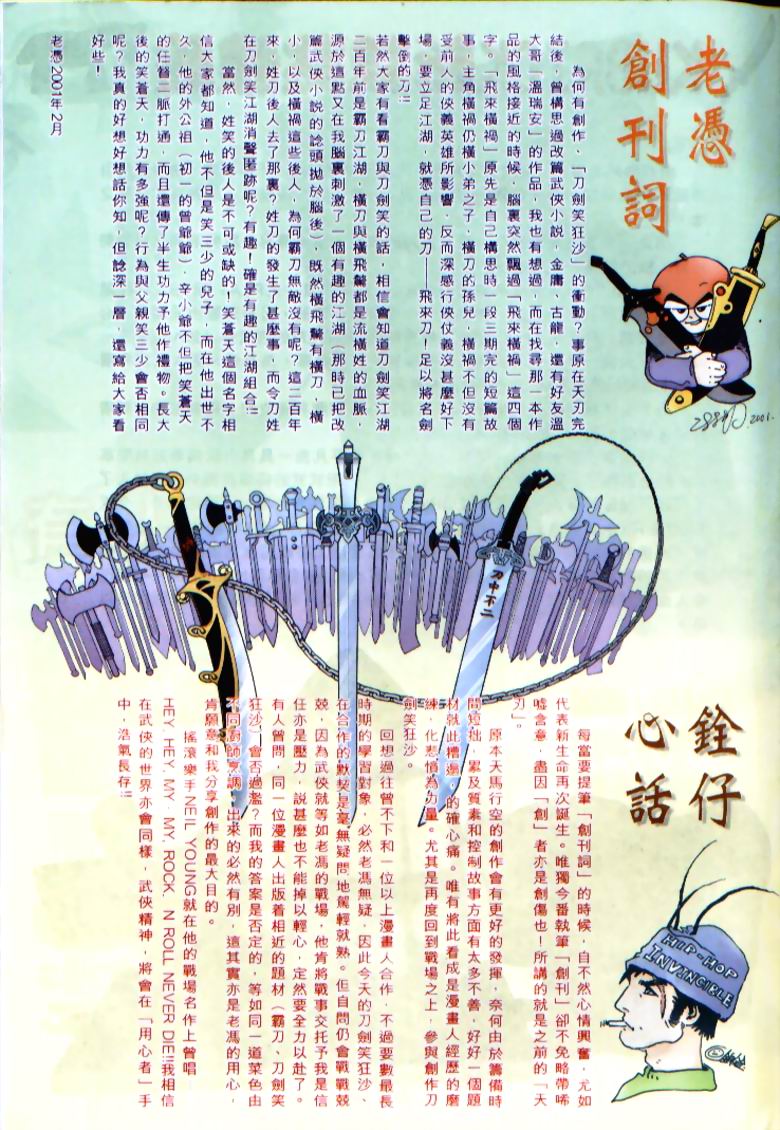 老憑
創刊詞
為何有創作，「刀劍笑狂沙」的衝動？事原在天刃完
結後，曾構思過改篇武俠小說，金庸、古龍，還有好友溫
大哥「溫瑞安」的作品，我也有想過，而在找尋那一本作
品的風格接近的時候，腦裏突然飄過「飛來橫禍」這四個
字。「飛來橫禍」原先是自己構思時一段三期完的短篇故
事，主角橫禍仍橫小弟之子，橫刀的孫兒，橫禍不但沒有
受前人的俠義英雄所影響，反而深感行俠仗義沒甚麼好下
場，要立足江湖，就憑自己的刀——飛來刀！足以將名劍
擊倒的刀!!
若然大家有看霸刀與刀劍笑的話，相信會知道刀劍笑江湖
二百年前是霸刀江湖，橫刀與橫飛驚都是流橫姓的血脈，
源於這點又在我腦裏刺激了一個有趣的江湖（那時已把改
篇武俠小說的諗頭拋於腦後），既然橫飛驚有橫刀，橫
小，以及橫禍這些後人，為何霸刀無敵沒有呢？這二百年
來，姓刀後人去了那裏？姓刀的發生了甚麼事，而令刀姓
在刀劍笑江湖消聲匿跡呢？有趣！確是有趣的江湖組合!!
當然，姓笑的後人是不可或缺的！笑蒼天這個名字相
信大家都知道，他不但是笑三少的兒子，而在他出世不
久，他的外公祖（初一的曾爺爺），辛小爺不但把笑蒼天
的任督二脈打通，而且還傳了半生功力予他作禮物。長大
後的笑蒼天，功力有多強呢？行為與父親笑三少會否相同
呢？我真的好想好想話你知，但諗深一層，還寫給大家看
好些！
老憑2001年2月
2001.
刀中不二
銓仔
心話
每當要提筆「創刊詞」的時候，自不然心情興奮，尤如
代表新生命再次誕生。唯獨今番執筆「創刊」卻不免略帶唏
噓含意，盡因「創」者亦是創傷也！所講的就是之前的「天
刃」。
原本天馬行空的創作會有更好的發揮，奈何由於籌備時
間短拙，累及質素和控制故事方面有太多不善，好好一個題
材就此糟蹋，的確心痛。唯有將此看成是漫畫人經歷的磨
練，化悲憤為力量。尤其是再度回到戰場之上，參與創作刀
劍笑狂沙。
回想過往曾不下和一位以上漫畫人合作，不過要數最長
時期的學習對象，必然老馮無疑，因此今天的刀劍笑狂沙、
在合作的默契是毫無疑問地駕輕就熟。但自問仍會戰戰兢
兢，因為武俠就等如老馮的戰場，他肯將戰事交托予我是信
任亦是壓力，說甚麼也不能掉以輕心，定然要全力以赴了。
有人曾問，同一位漫畫人出版着相近的題材（霸刀、刀劍笑
狂沙）會否過濫？而我的答案是否定的，等如同一道菜色由
不同廚師烹調，出來的必然有別，這其實亦是老馮的用心，
肯願意和我分享創作的最大目的。
搖滾樂手NEIL YOUNG就在他的戰場名作上曾唱—
HEY, HEY, MY, MY, ROCK, N ROLL NEVER DIE!!!我相信
在武俠的世界亦會同樣，武俠精神，將會在「用心者」手
中，浩氣長存!!
HIP-HOP
INVINCIBLE